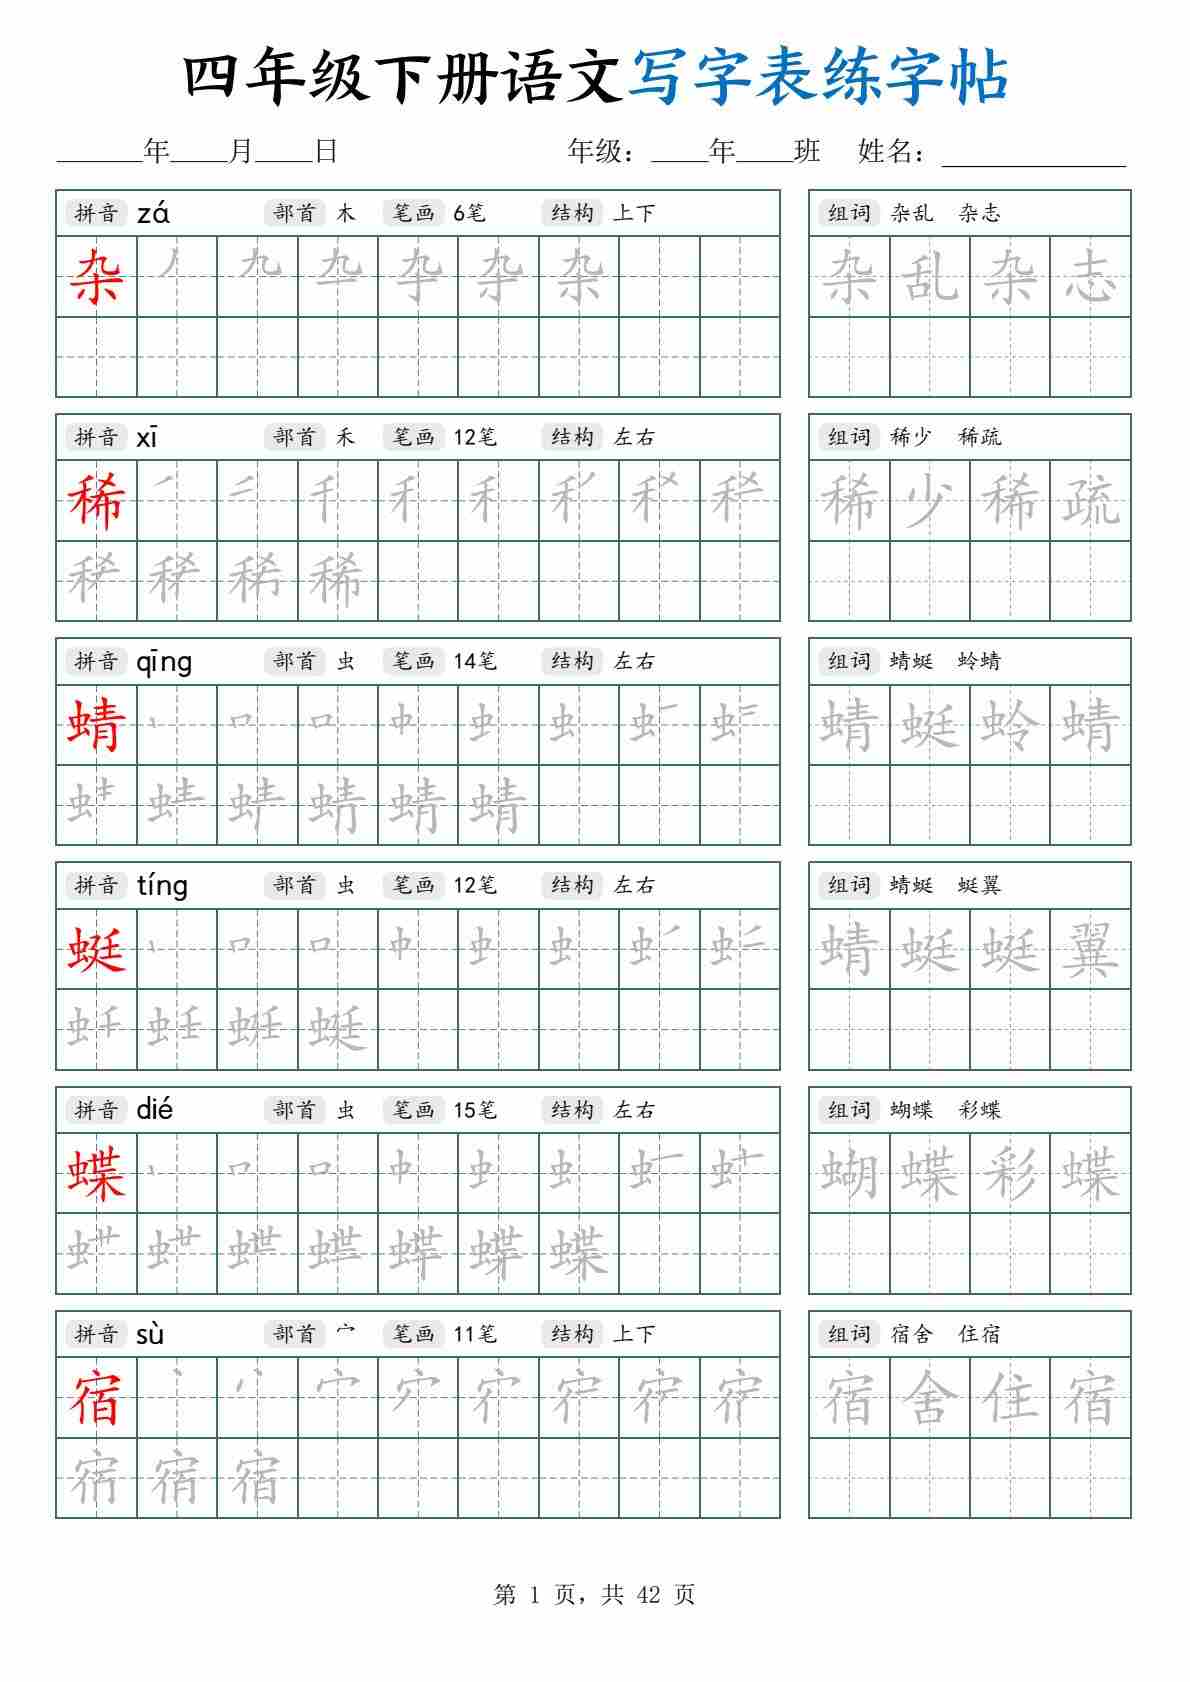 四年级下册语文写字表练字帖
年 月 日 年级： 年 班 姓名：
拼音 zá 部首 木 笔画 6笔 结构 上下 组词 杂乱 杂志
杂 杂 杂 乱 杂 志
拼音 xī 部首 禾 笔画 12笔 结构 左右 组词 稀少 稀疏
稀 稀 少 稀 疏
稀
拼音 qīng 部首 虫 笔画 14笔 结构 左右 组词 蜻蜓 蛉蜻
蜻 蜻 蜓 蛉 蜻
蜻
拼音 tíng 部首 虫 笔画 12笔 结构 左右 组词 蜻蜓 蜓翼
蜓 蜻 蜓 蜓 翼
蜓
拼音 dié 部首 虫 笔画 15笔 结构 左右 组词 蝴蝶 彩蝶
蝶 蝴 蝶 彩 蝶
蝶
拼音 sù 部首 宀 笔画 11笔 结构 上下 组词 宿舍 住宿
宿 宿 舍 住 宿
宿
第 1 页，共 42 页